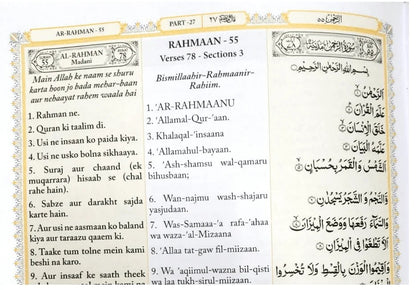 AR-RAHMAN - 55
PART -27
٢٧
الرحمن ٥٥
55
AL-RAHMAN
Madani
78
Main Allah ke naam se shuru
karta hoon jo bada mehar-baan
aur nehaayat rahem waala hai
1. Rahman ne.
2. Quran ki taalim di.
3. Usi ne insaan ko paida kiya.
4. Usi ne usko bolna sikhaaya.
5. Suraj aur chaand (ek
muqarrara) hisaab se (chal
rahe hain).
6. Sabze aur darakht sajda
karte hain.
7. Aur usi ne aasmaan ko baland
kiya aur taraazu qaaem ki.
8. Taake tum tolne mein kami
beshi na karo.
9. Aur insaaf ke saath theek
RAHMAAN - 55
Verses 78 - Sections 3
Bismillaahir-Rahmaanir-
Rahiim.
1. 'AR-RAHMAANU
2. 'Allamal-Qur-'aan.
3. Khalaqal-'insaana
4. 'Allamahul-bayaan.
5. 'Ash-shamsu wal-qamaru
bihusbaan;
6. Wan-najmu wash-shajaru
yasjudaan.
7. Was-Samaaa-'a rafa-'ahaa
wa waza-'al-Mizaan
8. 'Allaa tat-gaw fil-miizaan.
9. Wa 'aqiimul-wazna bil-qisti
wa laa tukh-sirul-miizaan.
بِسْمِ اللّٰهِ الرَّحْمٰنِ الرَّحِيْمِ
اَلرَّحْمٰنُ
عَلَّمَ الْقُرْاٰنَ
خَلَقَ الْاِنْسَانَ
عَلَّمَهُ الْبَيَانَ
اَلشَّمْسُ وَالْقَمَرُ بِحُسْبَانٍ
وَّالنَّجْمُ وَالشَّجَرُ يَسْجُدٰنِ
وَالسَّمَآءَ رَفَعَهَا وَوَضَعَ الْمِيْزَانَ
اَلَّا تَطْغَوْا فِى الْمِيْزَانِ
وَاَقِيْمُوا الْوَزْنَ بِالْقِسْطِ وَلَا تُخْسِرُوا